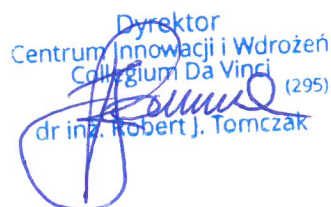 Dyrektor
Centrum Innowacji i Wdrożeń
Collegium Da Vinci
(295)
dr inż. Robert J. Tomczak